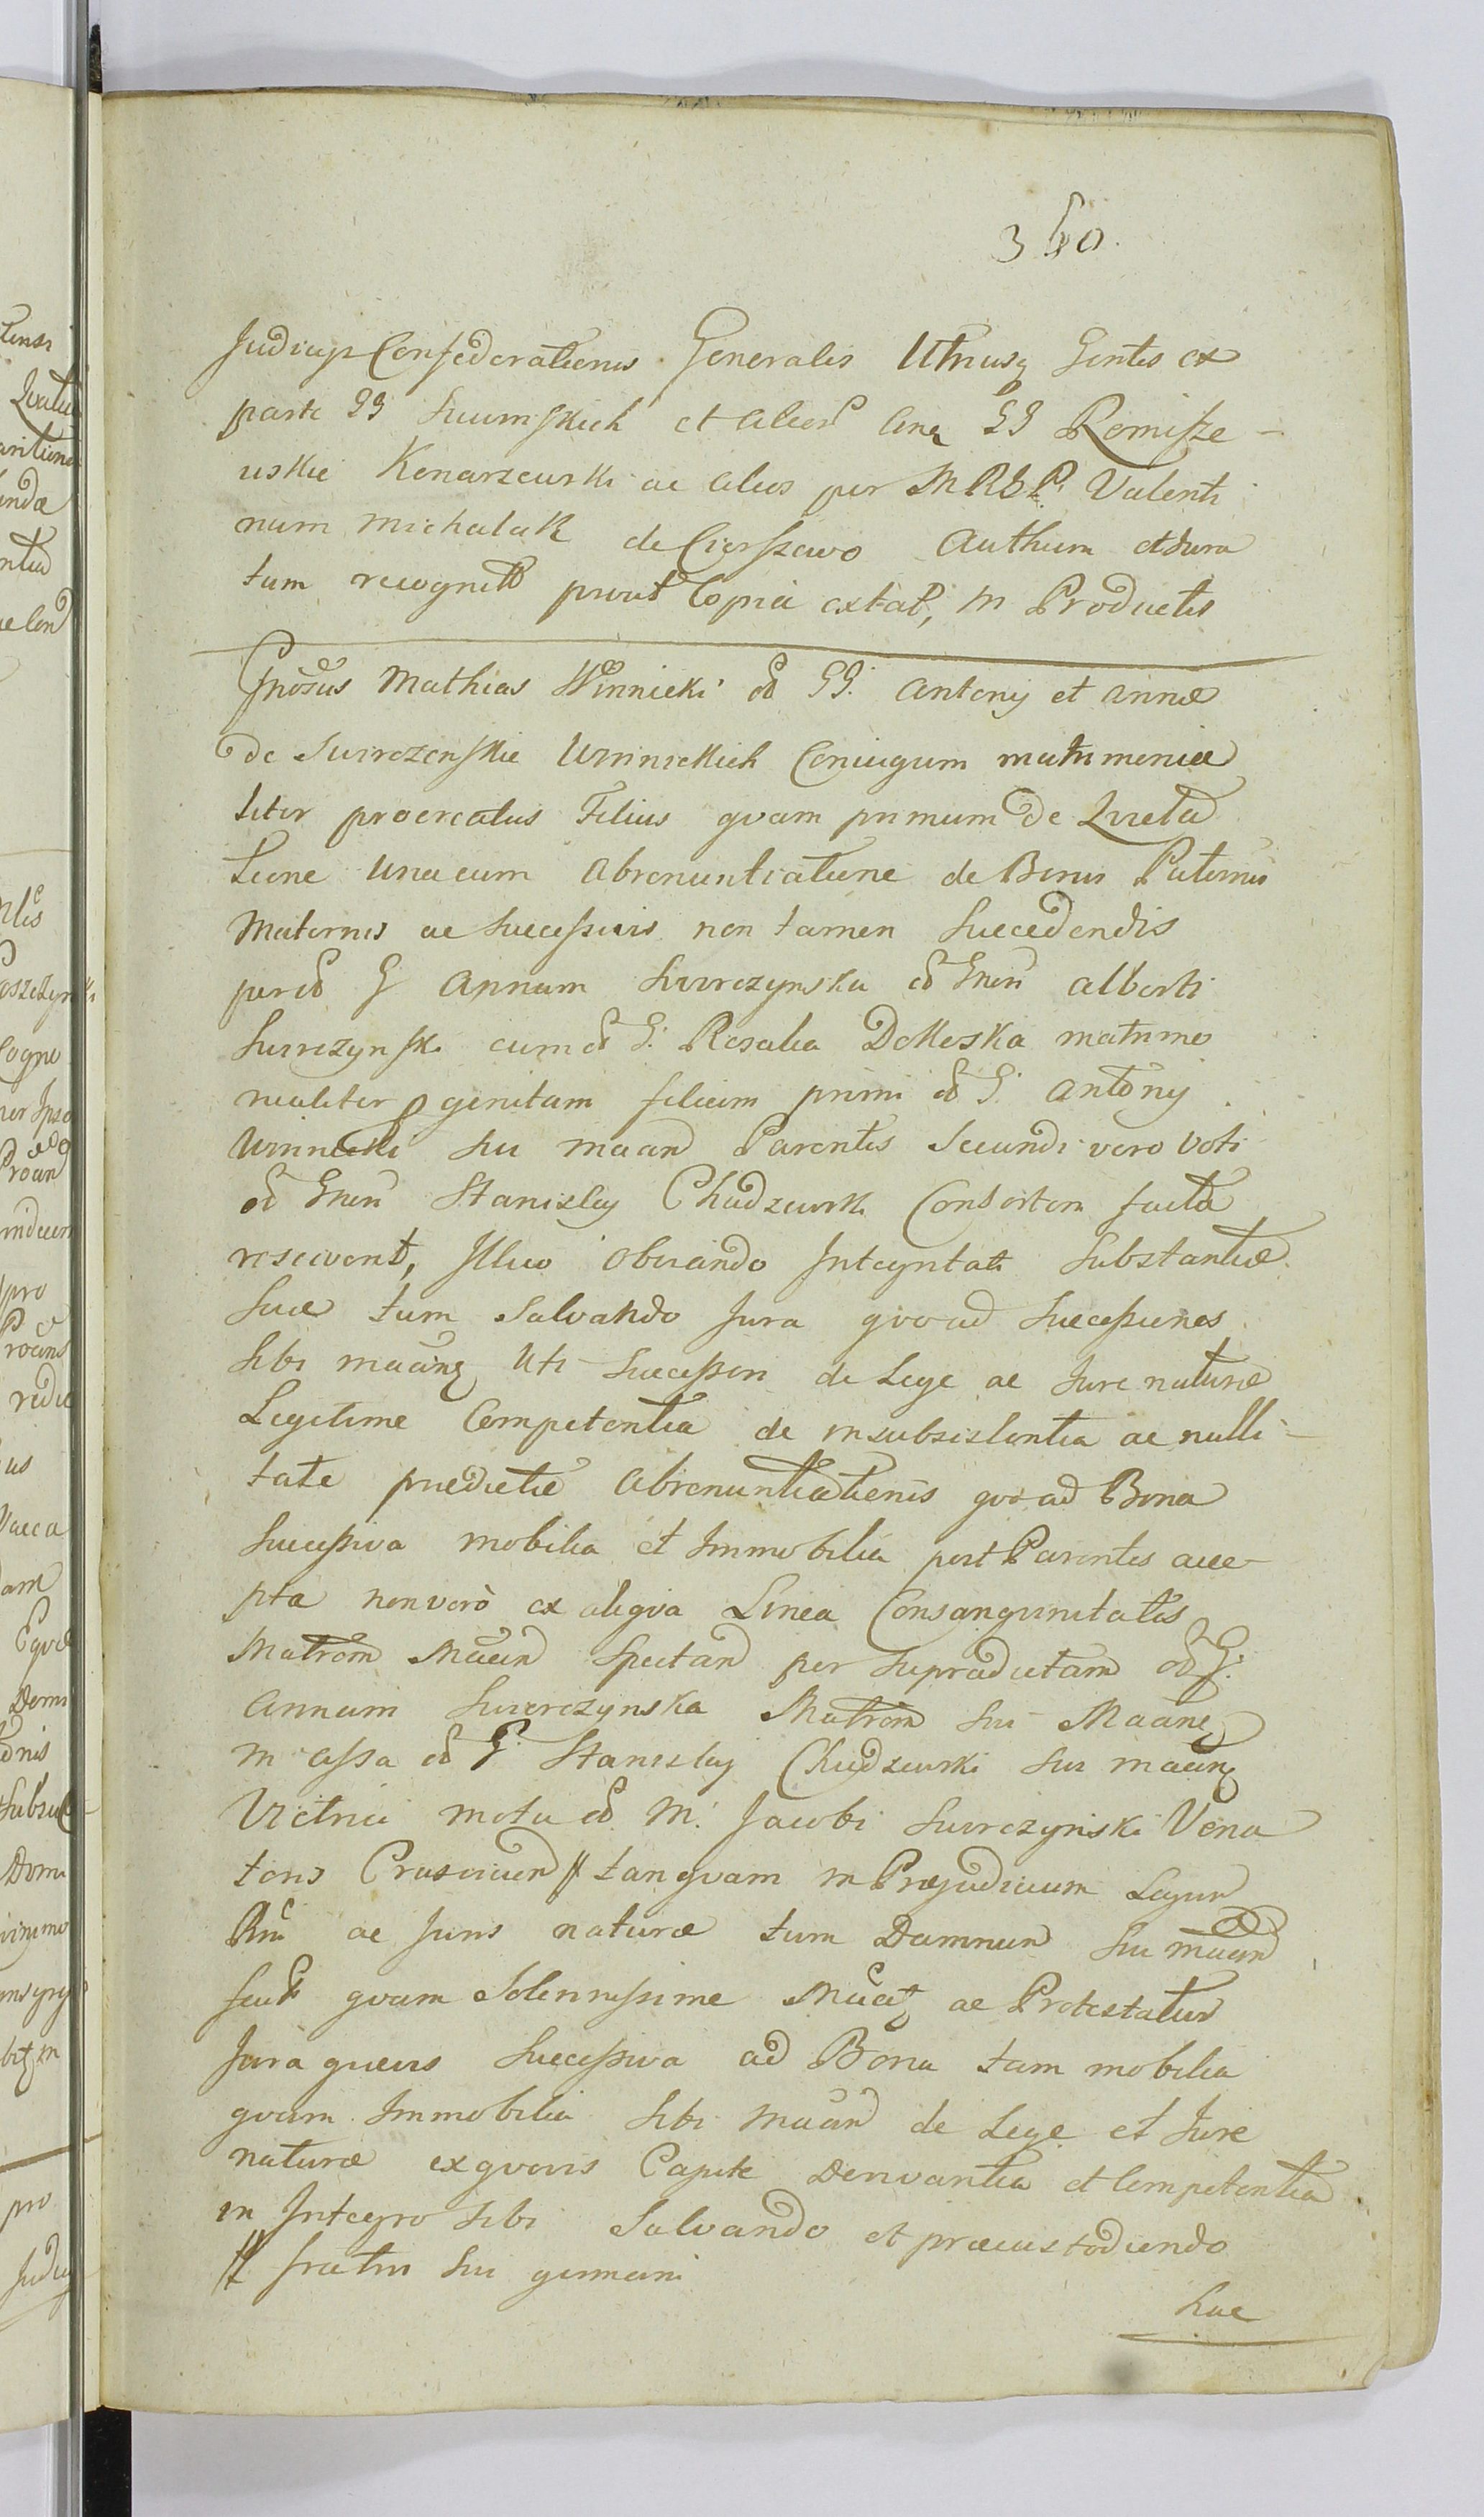 360.
Judicys Confederationis Generalis Utriusq Gentis ex
parte GG Suumskich et alior cnq GG Remisze-
wskie Konarzewski ac alios per MRLP. Valenti
num Michalak de Cierszewo Authum et Jura
tum recognitt prout Copia extat, in Productis
Gnosus Mathias Winnicki od GG. Antonij et Annæ
de Swirczenskie Winnickich Coniugum matrimonia
liter procreatus Filius qvam primum de Qvieta
tione unacum abrenuntiatione de Bonis Paternis
Maternis ac Successivis non tamen Succedendis
per od G Annam Swirczynska od Gnen Alberti
Swirczynski cum od G. Rosalia Dolleska matrimo
nialiter genitam filiam primi od G. Antonij
Winnicki sui maan Parentis Secundi vero Voti
od Gnen Stanislaj Chudzewski Consortem facta
resciverit, Illico obviando Integritati Substantiæ
Suæ tum Salvando Jura qvoad Successiones
Sibi maanq Uti Successori de Lege ac Jure naturæ
Legitime Competentia de insubsistentia ac nulli-
tate prædictæ abrenuntiationis qvoad Bona
Successiva mobilia et Immobilia post Parentes acce-
pta non verò ex aliqva Linea Consangvinitatis
Matrem Maan Spectan per Supradictam od G.
Annam Swierczynska Matrem sui Maanq
in assa od G. Stanislaj Chudzewski sui maanq
Victrici motu od M. Jacobi Swirczynski Vena
toris Crusvicien // tanqvam in Præjudicium Legum
Rni ac Juris naturæ tum Damnum sui maan
fact qvam Solennissime Maat ac Protestatur
Jura qvævis Successiva ad Bona tam mobilia
qvam Immobilia Sibi Maan de Lege et Jure
naturæ exqvovis Capite Derivantia et Competentia
in Integro Sibi Salvando et præcustodiendo
// fratris sui germani
hac